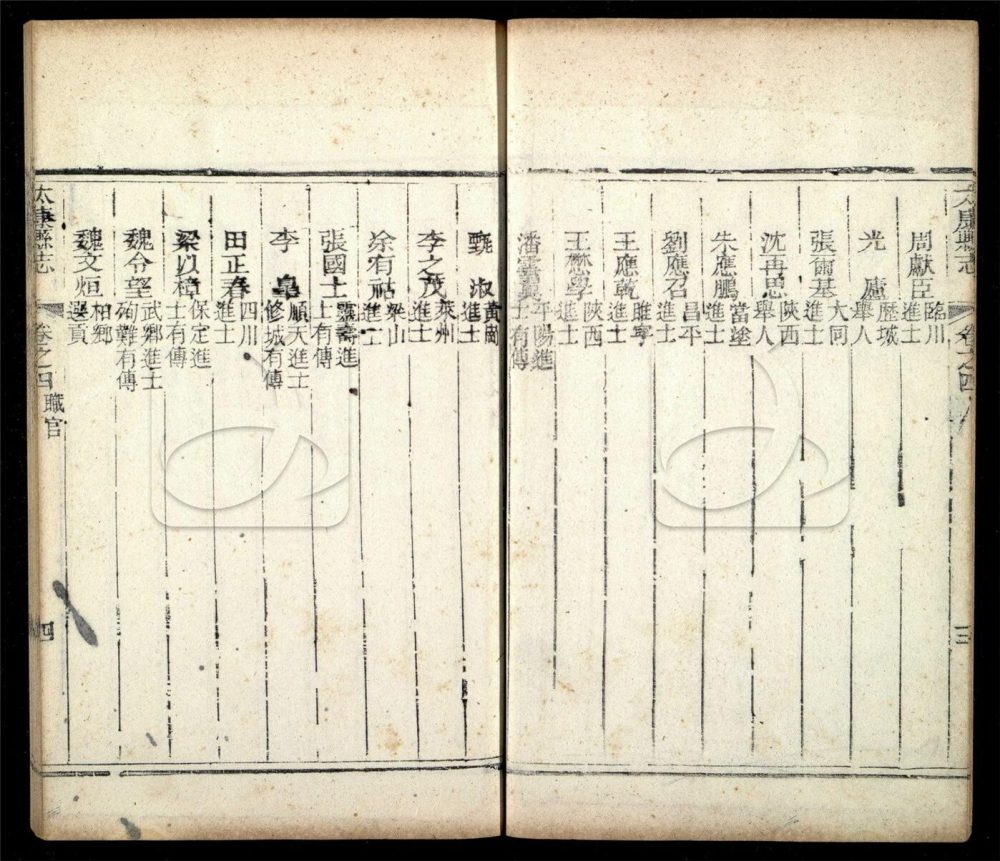 太康縣志
卷之四
三
周獻臣 臨川進士
光廬 歷城舉人
張爾基 大同進士
沈再思 陝西舉人
朱應鵬 當塗進士
劉應召 昌平進士
王應乾 雎寧進士
王懋學 陝西進士
潘雲翼 平陽進士有傳
甄淑 黃岡進士
李之茂 萊州進士
徐宥祐 梁山進士
張國士 靈壽進士有傳
李皐 順天進士修城有傳
田正春 四川進士
梁以樟 保定進士有傳
魏令望 武鄉進士殉難有傳
魏文烜 柏鄉選貢
太康縣志
卷之四
職官
四